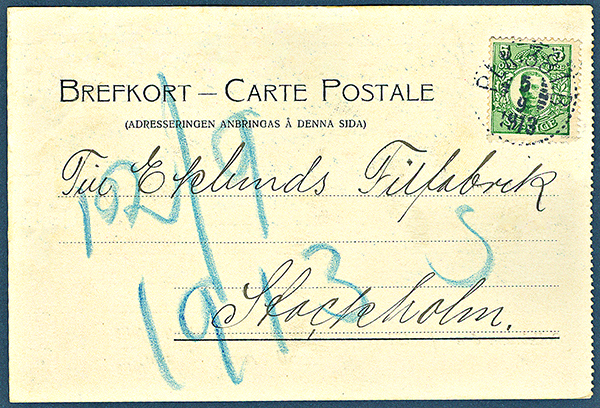 BREFKORT – CARTE POSTALE
(ADRESSERINGEN ANBRINGAS Å DENNA SIDA)
5
9
1913
Till Eklunds Filfabrik
Stockholm.
9
1913 S